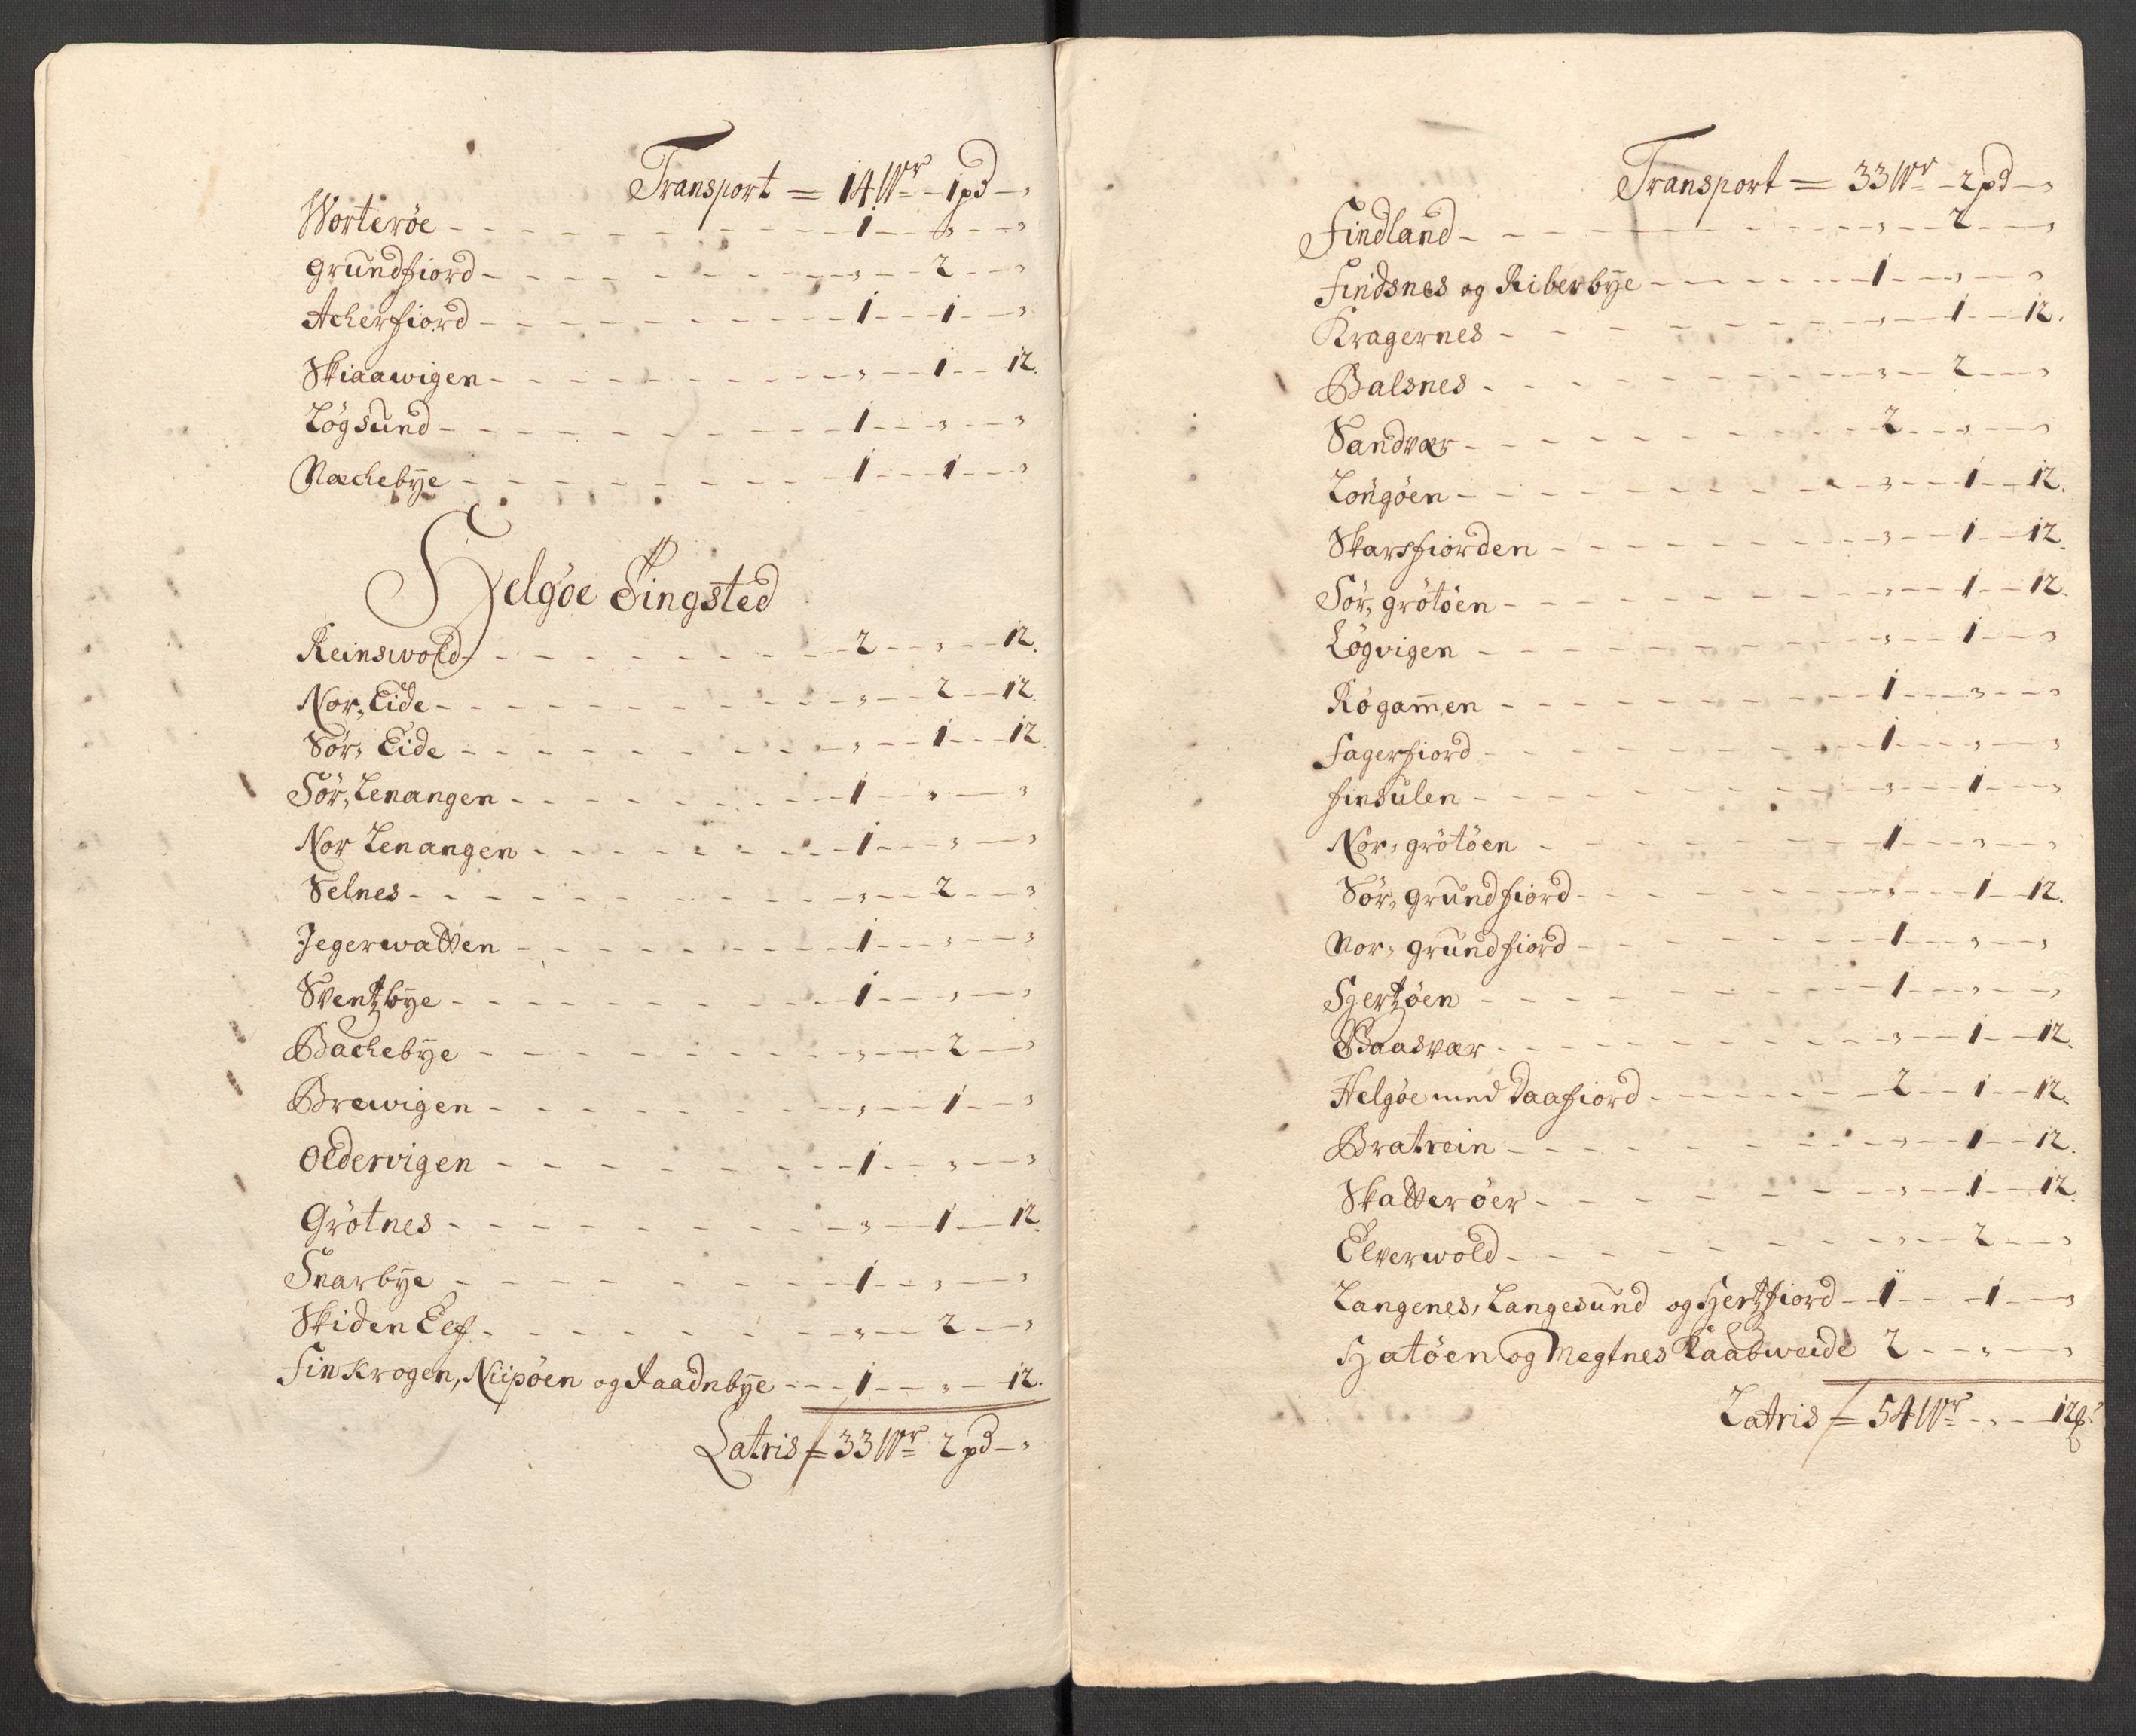 Transport = 14 Wr - 1 pd - „
Worterøe - - - 1 - - „ - - „
Grundfiord - - - „ - - 2 - - „
Acherfiord - - - 1 - - 1 - - „
Skiaawigen - - - „ - - 1 - - 12.
Løgsund - - - 1 - - „ - - „
Nachebÿe - - - 1 - - 1 - - „
Helgøe Tingsted
Reinswold - - - 2 - - „ - - 12.
Nor, Eide - - - „ - - 2 - - 12.
Sør, Eide - - - „ - - 1 - - 12.
Sør, Lenangen - - - 1 - - „ - - „
Nor Lenangen - - - 1 - - „ - - „
Selnes - - - „ - - 2 - - „
Jegerwatten - - - 1 - - „ - - „
Sventzbÿe - - - 1 - - „ - - „
Bachebÿe - - - „ - - 2 - - „
Brewigen - - - „ - - 1 - - „
Oldervigen - - - 1 - - „ - - „
Grötnes - - - „ - - 1 - - 12.
Snarbÿe - - - 1 - - „ - - „
Skiden Elf - - - „ - - 2 - - „
Finkrogen, Niipøen og Raadnbÿe - - - 1 - - „ - - 12.
Latris = 33 Wr 2 pd - „
Transport = 33 Wr - 2 pd - „
Findland - - - „ - - 2 - - „
Findsnes og Riberbÿe - - - 1 - - „ - - „
Kragernes - - - „ - - 1 - - 12.
Balsnes - - - „ - - 2 - - „
Sandvær - - - 2 - - „ - - „
Longøen - - - „ - - 1 - - 12.
Skarsfiorden - - - „ - - 1 - - 12.
Sør, grötöen - - - „ - - 1 - - 12.
Løgvigen - - - „ - - 1 - - „
Røgam̄en - - - 1 - - „ - - „
Fagerfiord - - - 1 - - „ - - „
Finsulen - - - „ - - 1 - - „
Nor, grötöen - - - 1 - - „ - - „
Sør, grundfiord - - - „ - - 1 - - 12.
Nor, grundfiord - - - 1 - - „ - - „
Hjertzøen - - - 1 - - „ - - „
Maasvær - - - „ - - 1 - - 12.
Helgøe med Daafiord - - - 2 - - 1 - - 12.
Bratrein - - - „ - - 1 - - 12.
Skatterøer - - - „ - - 1 - - 12.
Elverwold - - - „ - - 2 - - „
Langenes, Langesund og Hjertzfiord - - 1 - - 1 - - „
Hjatöen og Megtnes Kaabweide 2 - - „ - - „
Latris = 54 Wr - „ - 12